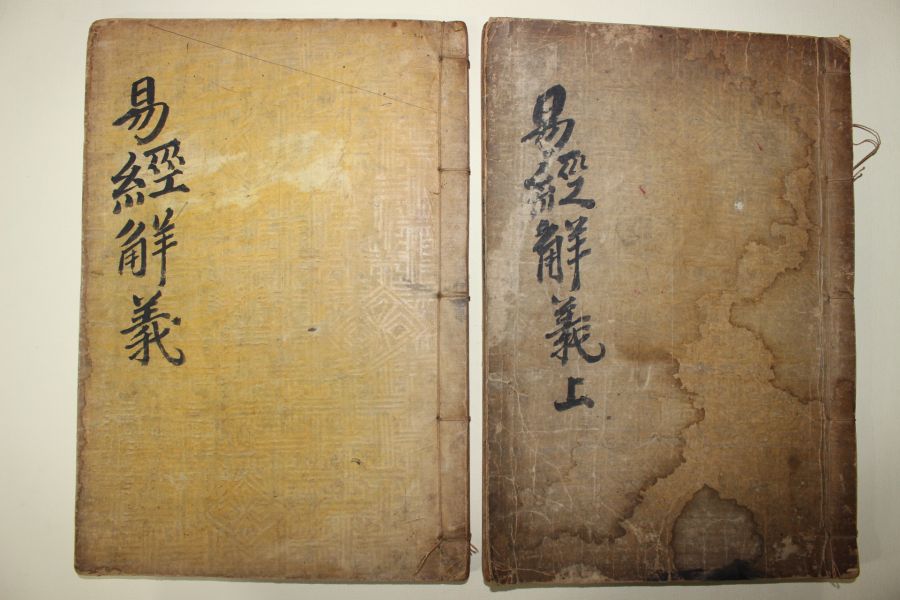 易經解義
易經解義上